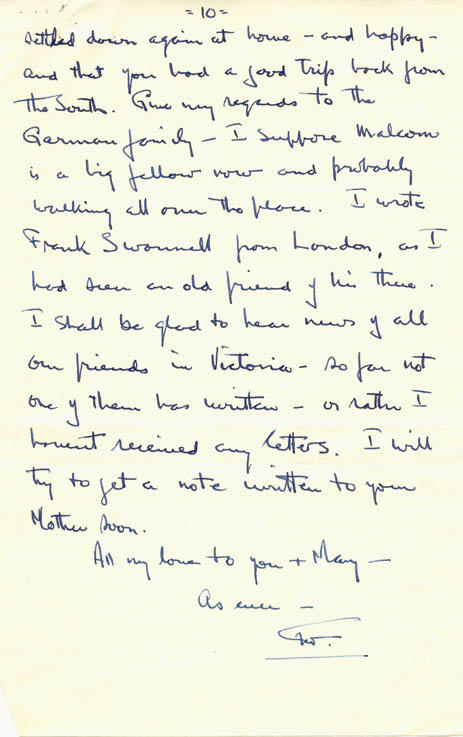 = 10 =
settled down again at home - and happy -
and that you had a good trip back from
the South. Give my regards to the
German family - I suppose Malcom
is a big fellow now and probably
walking all over the place. I wrote
Frank Swannell from London, as I
had seen an old friend of his there.
I shall be glad to hear news of all
our friends in Victoria - so far not
one of them has written - or rather I
haven't received any letters. I will
try to get a note written to your
Mother soon.
All my love to you + Mary -
As ever -